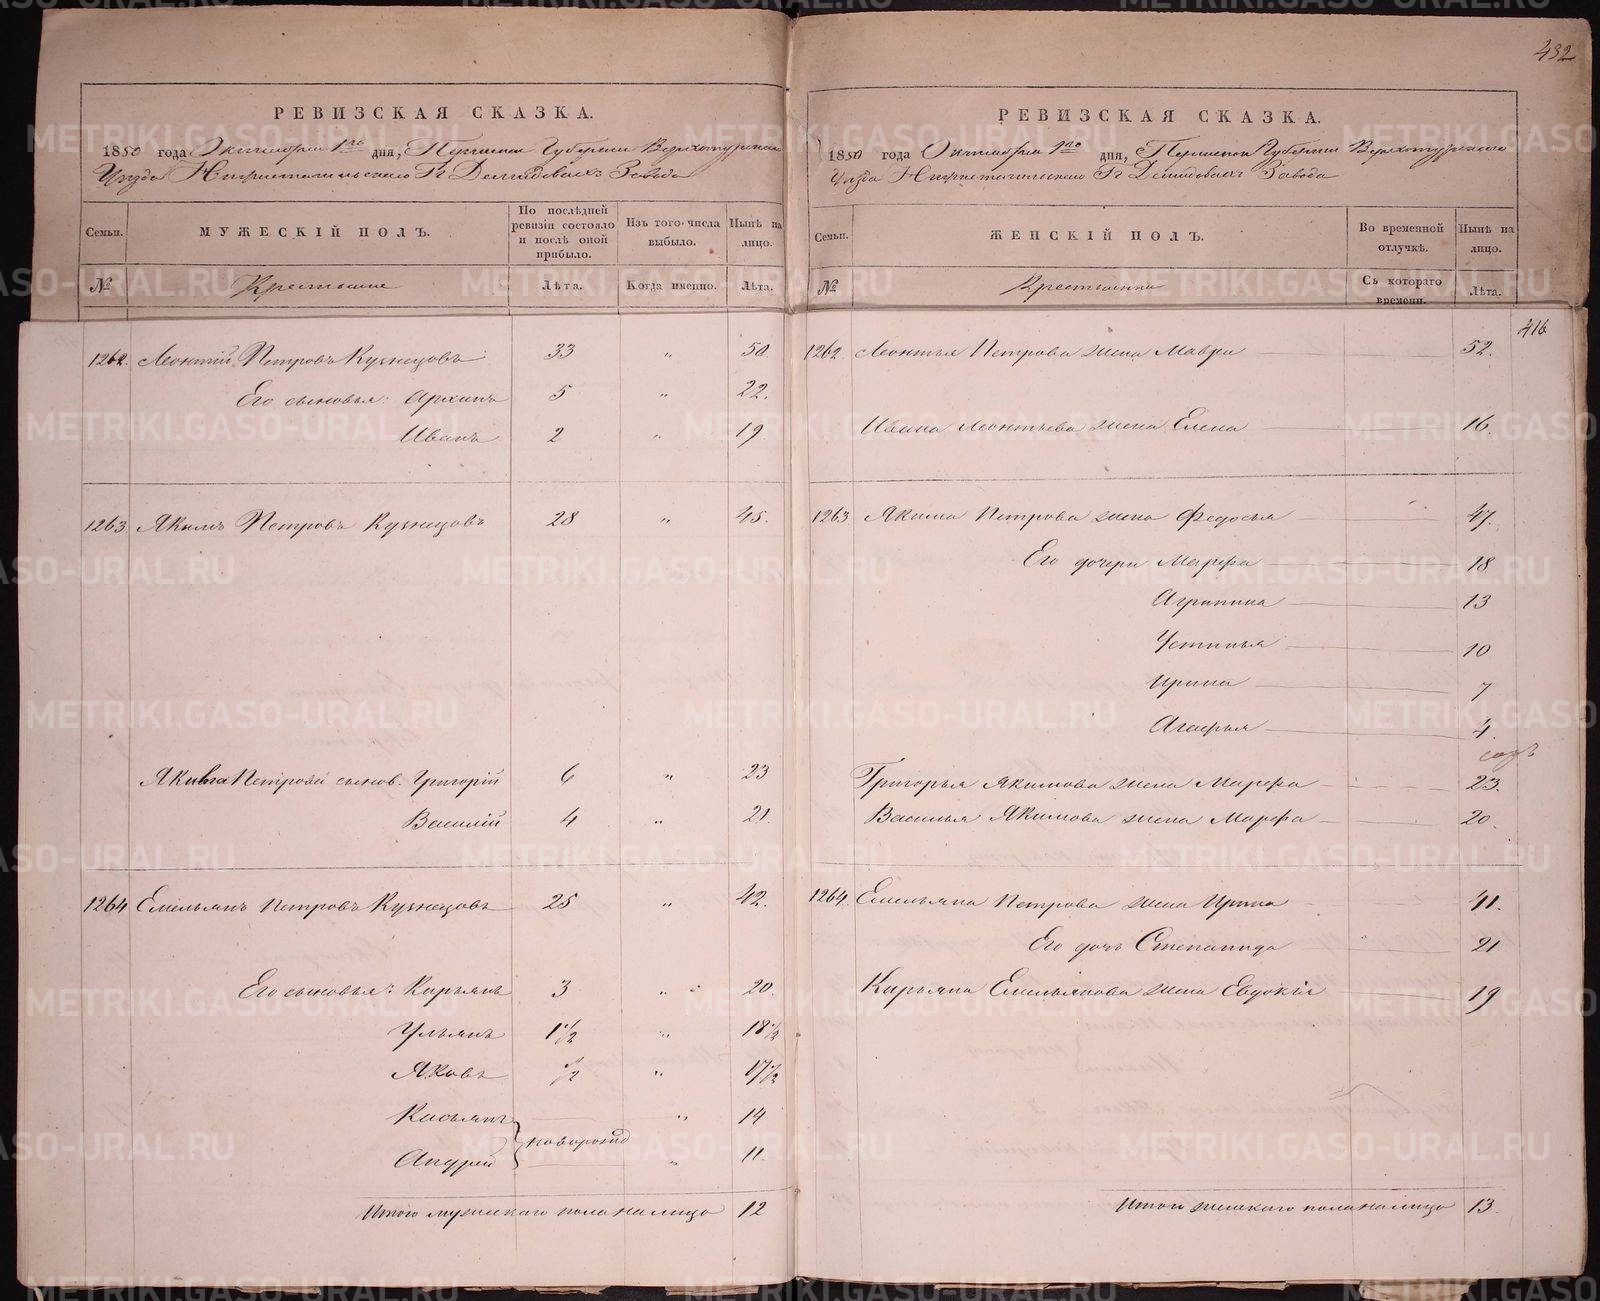 432
РЕВИЗСКАЯ СКАЗКА.
1850 года Октября 1го дня, Пермской Губернии Верхотурскаго
Уезда Нижнетагильскаго Гг Демидовыхъ Завода
Семьи.
МУЖЕСКІЙ ПОЛЪ.
По послѣдней ревизіи состояло и послѣ оной прибыло.
Изъ того числа выбыло.
Нынѣ на лицо.
№
Крестьяне
Лѣта.
Когда именно.
Лѣта.
1262. Леонтій Петровъ Кузнецовъ 33 " 50.
Его сыновья: Архипъ 5 " 22.
Иванъ 2 " 19
1263. Якимъ Петровъ Кузнецовъ 28 " 45.
Якима Петрова сынов. Григорій 6 " 23
Василій 4 " 21
1264 Емельянъ Петровъ Кузнецовъ 25 " 42.
Его сыновья: Кирьянъ 3 " 20.
Ульянъ 1 1/2 " 18 1/2
Яковъ 1/2 " 17 1/2
Касьянъ " 14
новорожд
Андрей " 11.
Итого мужескаго пола налицо 12
РЕВИЗСКАЯ СКАЗКА.
1850 года Октября 1го дня, Пермской Губернии Верхотурскаго
Уезда Нижнетагильскаго Гг Демидовыхъ Завода
Семьи.
ЖЕНСКІЙ ПОЛЪ.
Во временной отлучкѣ.
Нынѣ на лицо.
№
Крестьянки
Съ котораго времени.
Лѣта.
416
1262. Леонтья Петрова жена Мавра 52.
Ивана Леонтьева жена Елена 16.
1263. Якима Петрова жена Федосья 47.
Его дочери Марфа 18
Агрипина 13
Устинья 10
Ирина 7
Агафья 4
Григорья Якимова жена Марфа 23.
Василья Якимова жена Марфа 20.
1264. Емельяна Петрова жена Ирина 41.
Его дочь Степанида 21
Кирьяна Емельянова жена Евдокія 19
Итого женскаго пола налицо 13.
METRIKI.GASO-URAL.RU